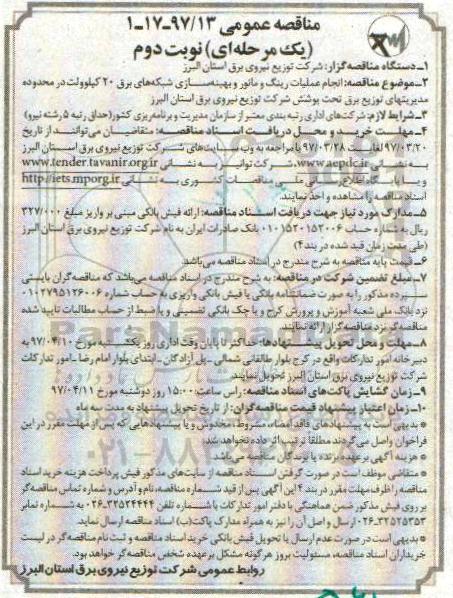 مناقصه عمومی ۹۷/۱۳-۱۷-۱
(یک مرحله‌ای) نوبت دوم
۱-دستگاه مناقصه‌گزار: شرکت توزیع نیروی برق استان البرز
۲-موضوع مناقصه: انجام عملیات رینگ و مانور و بهینه‌سازی شبکه‌های برق ۲۰ کیلوولت در محدوده
مدیریتهای توزیع برق تحت پوشش شرکت توزیع نیروی برق استان البرز
۳-شرایط لازم: شرکت‌های اداری رتبه‌بندی معتبر از سازمان مدیریت و برنامه‌ریزی کشور(حداقل رتبه ۵ رشته نیرو)
۴-مهلت خرید و محل دریافت اسناد مناقصه: متقاضیان می‌توانند از تاریخ
۹۷/۰۳/۲۰ لغایت ۹۷/۰۳/۲۸ با مراجعه به وب سایت‌های شرکت توزیع نیروی برق استان البرز
به نشانی www.aepdc.ir، شرکت توانیر به نشانی www.tender.tavanir.org.ir
و یا پایگاه اطلاع‌رسانی ملی مناقصات کشوری به نشانی http://iets.mporg.ir
اسناد مناقصه را مشاهده و اخذ نمایند.
۵-مدارک مورد نیاز جهت دریافت اسناد مناقصه: ارائه فیش بانکی مبنی بر واریز مبلغ ۳۲۷/۰۰۰
ریال به شماره حساب ۰۱۰۱۵۲۰۱۵۳۰۰۶ بانک صادرات ایران به نام شرکت توزیع نیروی برق استان البرز
(طی مدت زمان قید شده در بند۴)
۶-قیمت پایه مناقصه به شرح مندرج در اسناد مناقصه می‌باشد.
۷-مبلغ تضمین شرکت در مناقصه: به شرح مندرج در اسناد مناقصه می‌باشد که مناقصه‌گران بایستی
سپرده مذکور را به صورت ضمانتنامه بانکی یا فیش بانکی واریزی به حساب شماره ۰۱۰۲۷۹۵۱۲۶۰۰۶
نزد بانک ملی شعبه آموزش و پرورش کرج و یا چک بانکی تضمینی و یا ضبط از حساب مطالبات تایید شده
مناقصه‌گر نزد مناقصه‌گزار ارائه نمایند.
۸-مهلت و محل تحویل پیشنهادها: حداکثر تا پایان وقت اداری روز یکشنبه مورخ ۹۷/۰۴/۱۰ به
دبیرخانه امور تدارکات واقع در کرج بلوار طالقانی شمالی -پل آزادگان -ابتدای بلوار امام رضا -امور تدارکات
شرکت توزیع نیروی برق استان البرز تحویل نمایند.
۹-زمان گشایش پاکت‌های اسناد مناقصه: راس ساعت ۱۵:۰۰ روز دوشنبه مورخ ۹۷/۰۴/۱۱
۱۰-زمان اعتبار پیشنهاد قیمت مناقصه‌گران: از تاریخ تحویل پیشنهاد به مدت سه ماه
* بدیهی است به پیشنهادهای فاقد امضاء، مشروط، مخدوش و یا پیشنهادهایی که پس از مهلت مقرر در این
فراخوان واصل می‌گردند مطلقا ترتیب اثر داده نخواهد شد.
* هزینه آگهی برعهده برنده یا برندگان مناقصه می‌باشد.
* متقاضی موظف است در صورت گرفتن اسناد مناقصه از سایت‌های مذکور فیش پرداخت هزینه خرید اسناد
مناقصه را ظرف مهلت مقرر در بند ۴ این آگهی پس از قید شماره مناقصه، نام و آدرس و شماره تماس مناقصه‌گر
بر روی فیش مذکور ضمن هماهنگی با دفتر امور تدارکات با شماره تلفن ۳۲۵۲۴۴۴۴-۰۲۶ به شماره نمابر
۳۲۵۲۵۳۵۳-۰۲۶ ارسال و اصل آن را نیز به همراه مدارک پاکت(ب) اسناد مناقصه ارسال نماید.
* بدیهی است در صورت عدم ارسال یا تحویل فیش بانکی خرید اسناد مناقصه و ثبت نام مناقصه‌گر در لیست
خریداران اسناد مناقصه، مسئولیت بروز هرگونه مشکل برعهده شخص مناقصه‌گر خواهد بود.
روابط عمومی شرکت توزیع نیروی برق استان البرز